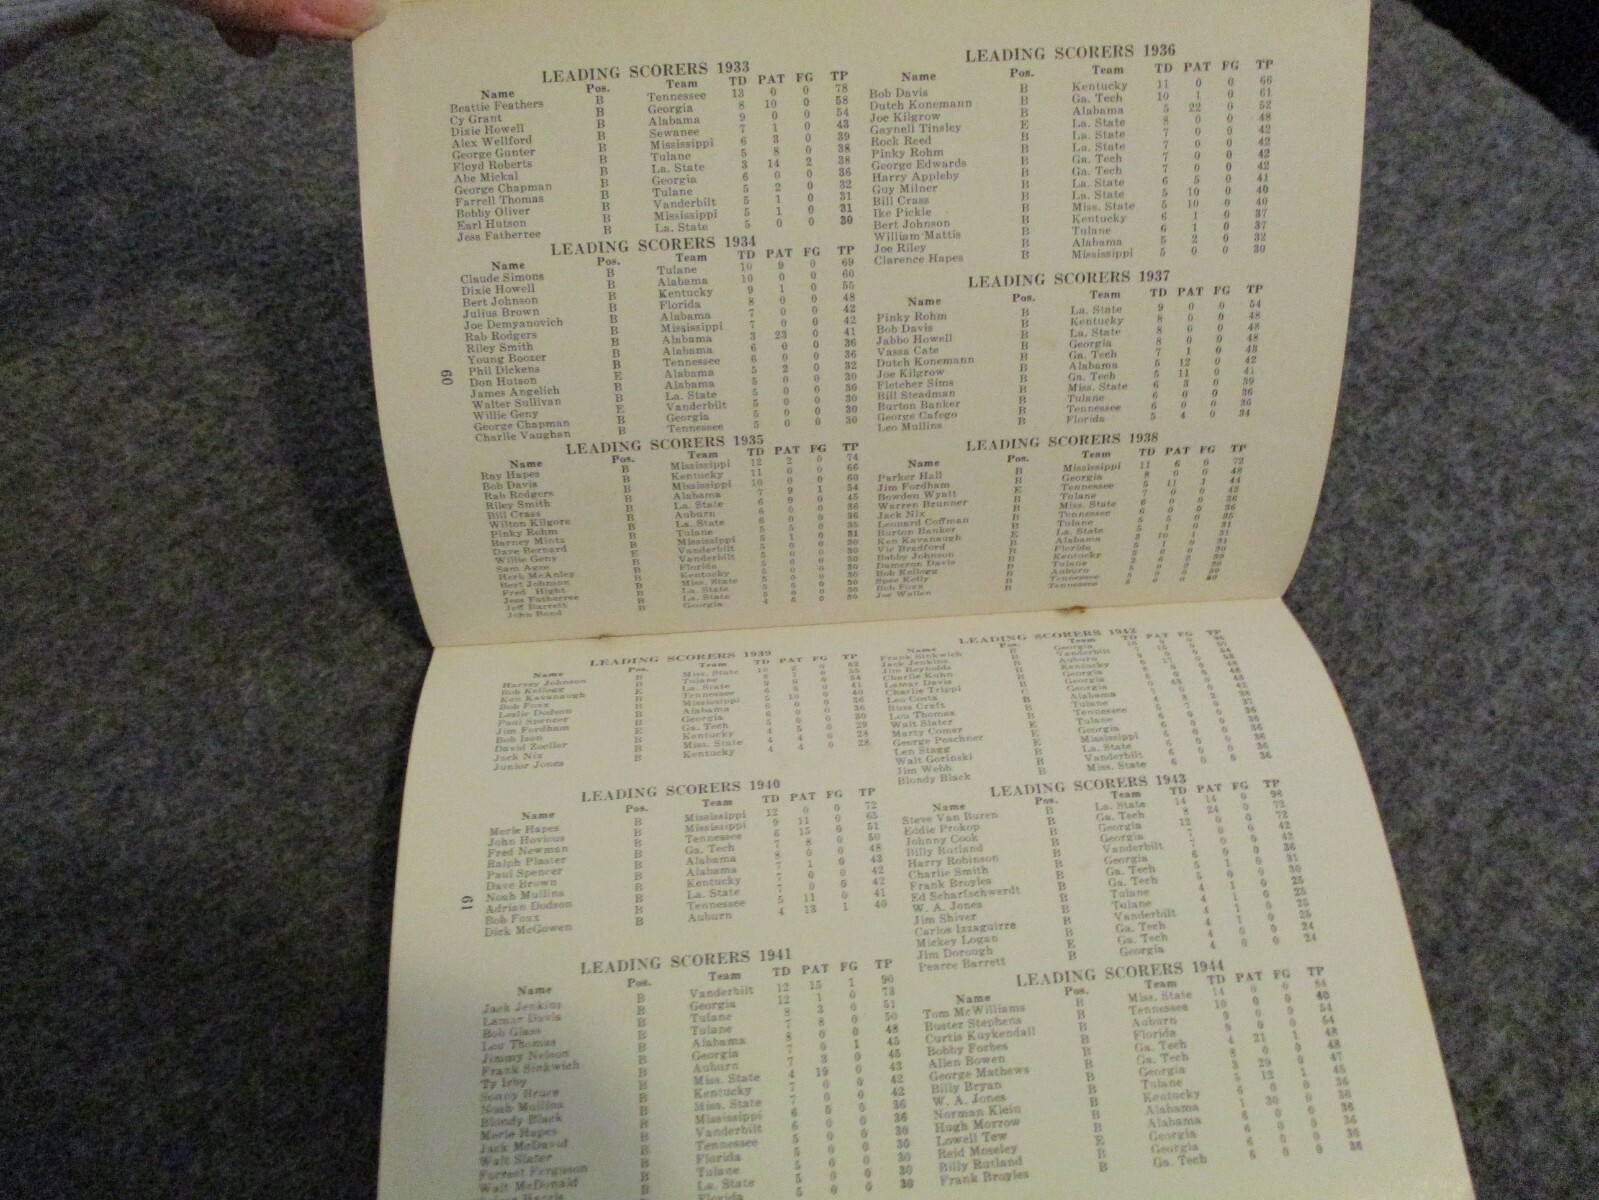 LEADING SCORERS 1933
Name Pos. Team TD PAT FG TP
Beattie Feathers B Tennessee 13 0 0 78
Cy Grant B Georgia 8 10 0 58
Dixie Howell B Alabama 9 0 0 54
Alex Wellford B Sewanee 7 1 0 43
George Gunter B Mississippi 6 3 0 39
Floyd Roberts B Tulane 5 8 0 38
Abe Mickal B La. State 3 14 2 38
George Chapman B Georgia 6 0 0 36
Farrell Thomas B Tulane 5 2 0 32
Bobby Oliver B Vanderbilt 5 1 0 31
Earl Hutson B Mississippi 5 1 0 31
Jess Fatherree B La. State 5 0 0 30
LEADING SCORERS 1934
Name Pos. Team TD PAT FG TP
Claude Simons B Tulane 10 9 0 69
Dixie Howell B Alabama 10 0 0 60
Bert Johnson B Kentucky 9 1 0 55
Julius Brown B Florida 8 0 0 48
Joe Demyanovich B Alabama 7 0 0 42
Rab Rodgers B Mississippi 7 0 0 42
Riley Smith B Alabama 3 23 0 41
Young Boozer B Alabama 6 0 0 36
Phil Dickens B Tennessee 6 0 0 36
Don Hutson E Alabama 5 2 0 32
James Angelich B Alabama 5 0 0 30
Walter Sullivan B La. State 5 0 0 30
Willie Geny E Vanderbilt 5 0 0 30
George Chapman B Georgia 5 0 0 30
Charlie Vaughan B Tennessee 5 0 0 30
LEADING SCORERS 1935
Name Pos. Team TD PAT FG TP
Ray Hapes B Mississippi 12 2 0 74
Bob Davis B Kentucky 11 0 0 66
Rab Rodgers B Mississippi 10 0 0 60
Riley Smith B Alabama 7 9 1 54
Bill Crass B La. State 6 9 0 45
Wilton Kilgore B Auburn 6 0 0 36
Pinky Rohm B La. State 6 0 0 36
Barney Mintz B Tulane 5 5 0 35
Dave Bernard B Mississippi 5 1 0 31
Willie Geny E Vanderbilt 5 0 0 30
Sam Agee B Vanderbilt 5 0 0 30
Herb McAnley B Florida 5 0 0 30
Bert Johnson B Kentucky 5 0 0 30
Fred Hight B Miss. State 5 0 0 30
Jess Fatherree B La. State 5 0 0 30
Jeff Barrett La. State 5 0 0 30
John Bond B Georgia 4 6 0 30
60
LEADING SCORERS 1936
Name Pos. Team TD PAT FG TP
Bob Davis B Kentucky 11 0 0 66
Dutch Konemann B Ga. Tech 10 1 0 61
Joe Kilgrow B Alabama 5 22 0 52
Gaynell Tinsley E La. State 8 0 0 48
Rock Reed B La. State 7 0 0 42
Pinky Rohm B La. State 7 0 0 42
George Edwards B Ga. Tech 7 0 0 42
Harry Appleby B Ga. Tech 7 0 0 42
Guy Milner B La. State 6 5 0 41
Bill Crass B La. State 5 10 0 40
Ike Pickle B Miss. State 5 10 0 40
Bert Johnson B Kentucky 6 1 0 37
William Mattis B Tulane 6 1 0 37
Joe Riley B Alabama 5 2 0 32
Clarence Hapes B Mississippi 5 0 0 30
LEADING SCORERS 1937
Name Pos. Team TD PAT FG TP
Pinky Rohm B La. State 9 0 0 54
Bob Davis B Kentucky 8 0 0 48
Jabbo Howell B La. State 8 0 0 48
Vassa Cate B Georgia 8 0 0 48
Dutch Konemann B Ga. Tech 7 1 0 43
Joe Kilgrow B Alabama 5 12 0 42
Fletcher Sims B Ga. Tech 5 11 0 41
Bill Steadman B Miss. State 6 3 0 39
Burton Banker B Tulane 6 0 0 36
George Cafego B Tennessee 6 0 0 36
Leo Mullins B Florida 5 4 0 34
LEADING SCORERS 1938
Name Pos. Team TD PAT FG TP
Parker Hall B Mississippi 11 6 0 72
Jim Fordham B Georgia 8 0 0 48
Bowden Wyatt E Tennessee 5 11 1 44
Warren Brunner B Tulane 7 0 0 42
Jack Nix B Miss. State 6 0 0 36
Leonard Coffman B Tennessee 6 0 0 36
Burton Banker B Tulane 5 5 0 35
Ken Kavanaugh E La. State 5 1 0 31
Vic Bradford B Alabama 3 10 1 31
Bobby Johnson Florida
Dameron Davis Kentucky
Bob Kellogg Tulane
Spec Kelly Auburn
Bob Foxx Tennessee
Joe Wallen Tennessee
LEADING SCORERS 1939
Name Pos. Team TD PAT FG TP
Harvey Johnson B Miss. State 10 2 0 62
Bob Kellogg B Tulane
Ken Kavanaugh E La. State 9 0 0 54
Bob Foxx B Tennessee
Leslie Dodson B Mississippi 5 10 0 40
Paul Spencer B Alabama 6 0 0 36
Jim Fordham B Georgia 6 0 0 36
Bob Ison E Ga. Tech 5 0 0 30
David Zoeller B Kentucky 4 5 0 29
Jack Nix B Miss. State 4 4 0 28
Junior Jones B Kentucky 4 4 0 28
LEADING SCORERS 1940
Name Pos. Team TD PAT FG TP
Merle Hapes B Mississippi 12 0 0 72
John Hovious B Mississippi 9 11 0 65
Fred Newman B Tennessee 6 15 0 51
Ralph Plaster B Ga. Tech 7 8 0 50
Paul Spencer B Alabama 8 0 0 48
Dave Brown B Alabama 7 1 0 43
Noah Mullins B Kentucky 7 0 0 42
Adrian Dodson B La. State 7 0 0 42
Bob Foxx B Tennessee 5 11 0 41
Dick McGowen B Auburn 4 13 1 40
LEADING SCORERS 1941
Name Pos. Team TD PAT FG TP
Jack Jenkins B Vanderbilt 12 15 1 90
Lamar Davis B Georgia 12 1 0 73
Bob Glass B Tulane 8 3 0 51
Lou Thomas B Tulane 7 8 0 50
Jimmy Nelson B Alabama 8 0 0 48
Frank Sinkwich B Georgia 7 0 1 45
Ty Irby B Auburn 7 3 0 45
Sonny Bruce B Miss. State 4 19 0 43
Noah Mullins B Kentucky 7 0 0 42
Blondy Black B Miss. State 7 0 0 42
Merle Hapes B Mississippi 6 0 0 36
Jack McDavid B Vanderbilt 6 0 0 36
Walt Slater B Tennessee 5 0 0 30
Forrest Ferguson Florida 5 0 0 30
Walt McDonald B Tulane 5 0 0 30
B La. State 5 0 0 30
Florida 5 0 0 30
61
LEADING SCORERS 1942
Name Pos. Team TD PAT FG TP
Frank Sinkwich B Georgia
Jack Jenkins B Vanderbilt
Jim Reynolds Auburn
Charlie Kuhn Kentucky
Lamar Davis Georgia
Charlie Trippi Georgia
Leo Costa Georgia
Russ Craft Alabama
Lou Thomas B Tulane
Walt Slater B Tennessee
Marty Comer E Tulane
George Poschner E Georgia
Len Stagg Mississippi
Walt Gorinski B La. State
Jim Webb Vanderbilt
Blondy Black B Miss. State 6 0 0 36
LEADING SCORERS 1943
Name Pos. Team TD PAT FG TP
Steve Van Buren B La. State 14 14 0 98
Eddie Prokop B Ga. Tech 8 24 0 72
Johnny Cook B Georgia 12 0 0 72
Billy Rutland B Georgia 7 0 0 42
Harry Robinson B Vanderbilt 7 0 0 42
Charlie Smith B Georgia 6 0 0 36
Frank Broyles B Ga. Tech 5 1 0 31
Ed Scharfschwerdt B Ga. Tech 5 0 0 30
W. A. Jones B Tulane 4 1 0 25
Jim Shiver B Tulane 4 1 0 25
Carlos Izzaguirre B Vanderbilt 4 1 0 25
Mickey Logan B Ga. Tech 4 1 0 25
Jim Dorough B Ga. Tech 4 0 0 24
Pearce Barrett E Georgia 4 0 0 24
LEADING SCORERS 1944
Name Pos. Team TD PAT FG TP
Tom McWilliams B Miss. State 14 0 0 84
Buster Stephens B Tennessee 10 0 0 60
Curtis Kuykendall B Auburn 9 0 0 54
Bobby Forbes B Florida 9 0 0 54
Allen Bowen B Ga. Tech 4 21 1 48
George Mathews B Ga. Tech 8 0 0 48
Billy Bryan B Georgia 3 29 0 47
W. A. Jones B Tulane 5 12 1 45
Norman Klein B Kentucky 6 0 0 36
Hugh Morrow B Alabama 1 30 0 36
Lowell Tew B Alabama 6 0 0 36
Reid Moseley E Georgia 6 0 0 36
Billy Rutland B Georgia 6 0 0 36
Frank Broyles B Ga. Tech 6 0 0 36